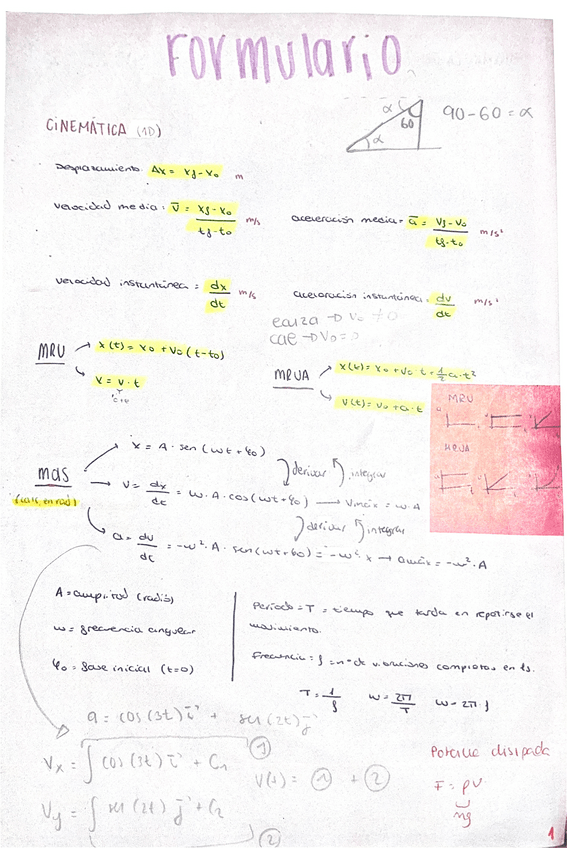 Formulario
CINEMÁTICA (1D)
α 60 α
90-60=α
Desplazamiento: Δx = xf-x0 m
velocidad media: v̄ = xf-x0 / tf-t0 m/s
aceleración media = ā = vf-v0 / tf-t0 m/s²
velocidad instantánea = dx/dt m/s
aceleración instantánea = dv/dt m/s²
cae → v0=0
MRU
x(t) = x0 + v0 (t-t0)
x = v·t
MRUA
x(t) = x0 + v0·t + 1/2 a·t²
v(t) = v0 + a·t
MRU
MRUA
mas
x = A·sen(wt+φ0)
derivar integrar
v = dx/dt = w·A·cos(wt+φ0) → vmáx = w·A
derivar integrar
a = dv/dt = -w²·A·sen(wt+φ0) = -w²·x → amáx = -w²·A
A = amplitud (radio)
w = frecuencia angular
φ0 = fase inicial (t=0)
Período = T = tiempo que tarda en repetirse el
movimiento.
Frecuencia = f = nº de vibraciones completas en 1s.
T = 1/f w = 2π/T w = 2π·f
a = cos(3t) i + sen(2t) j
Vx = ∫ cos(3t) i + C1 1
V(t) = 1 + 2
Vy = ∫ sen(2t) j + C2
2
Potencia disipada
F = pv
mg
1